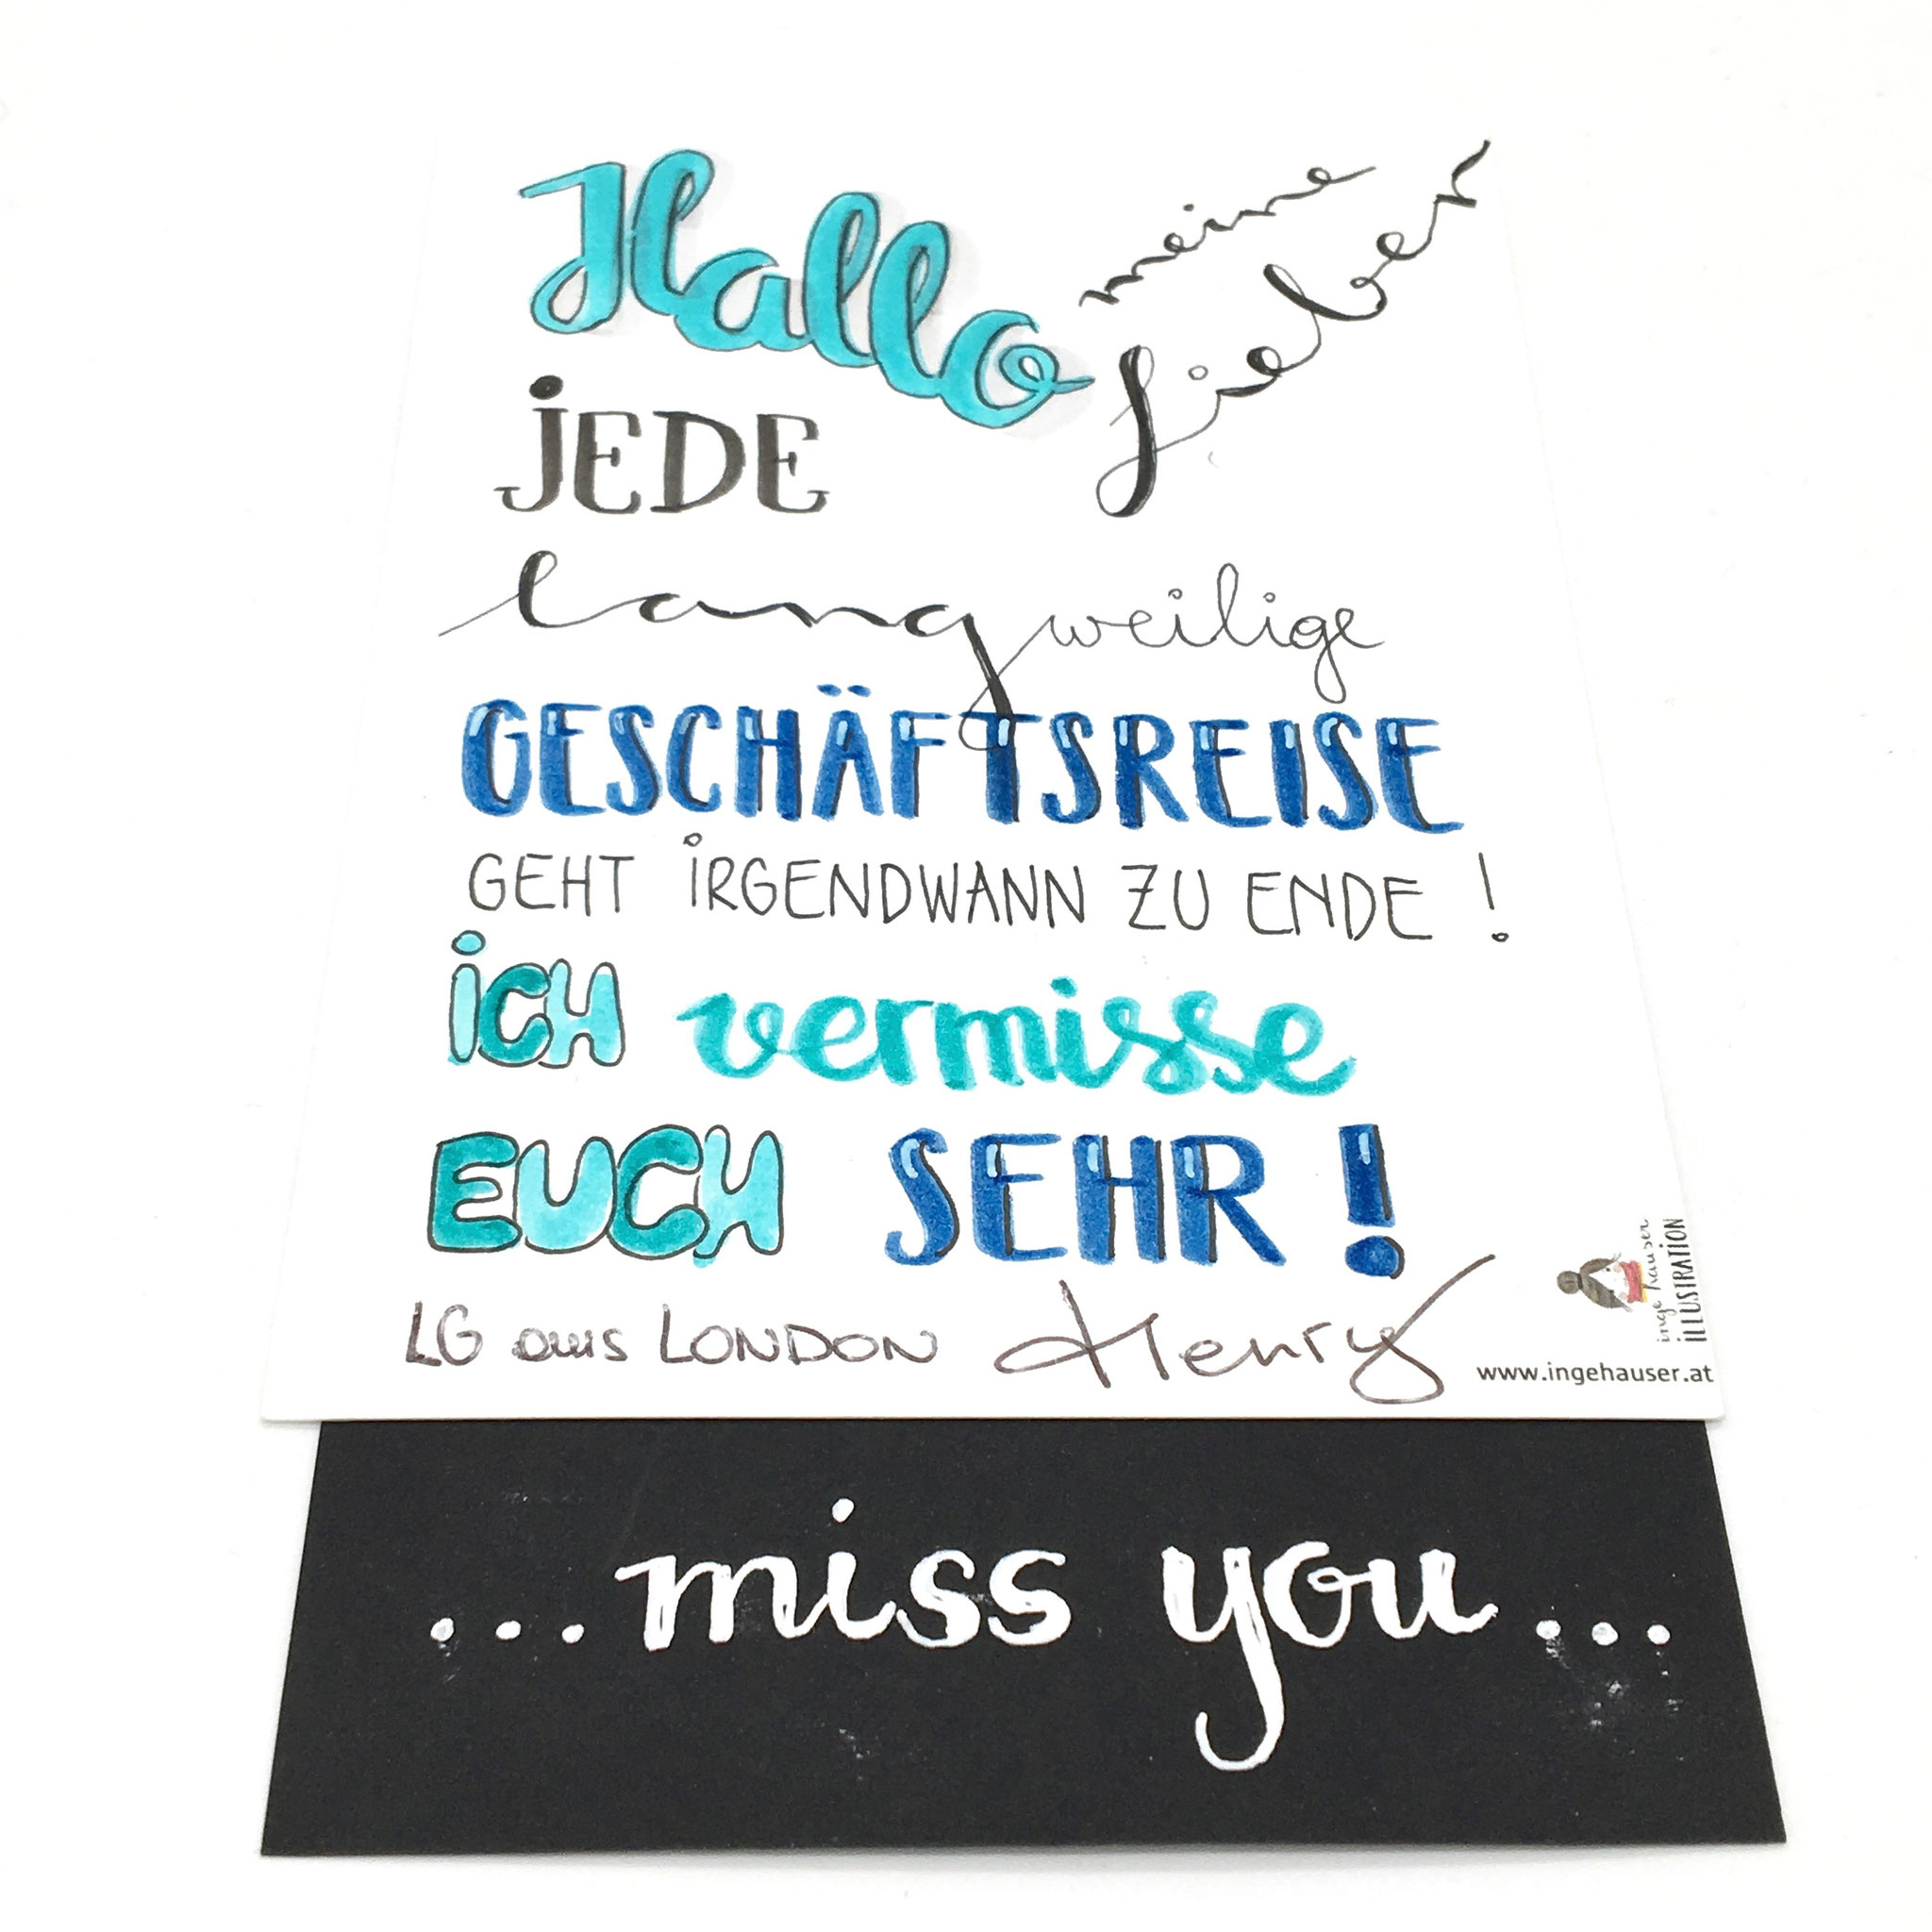 Hallo meine
Lieben
jEDE
langweilige
GESCHÄFTSREISE
GEHT iRGENDWANN ZU ENDE!
iCH vermisse
EUCH SEHR!
LG aus LONDON Henry
inge hauser
iLLUSTRATiON
www.ingehauser.at
...miss you...